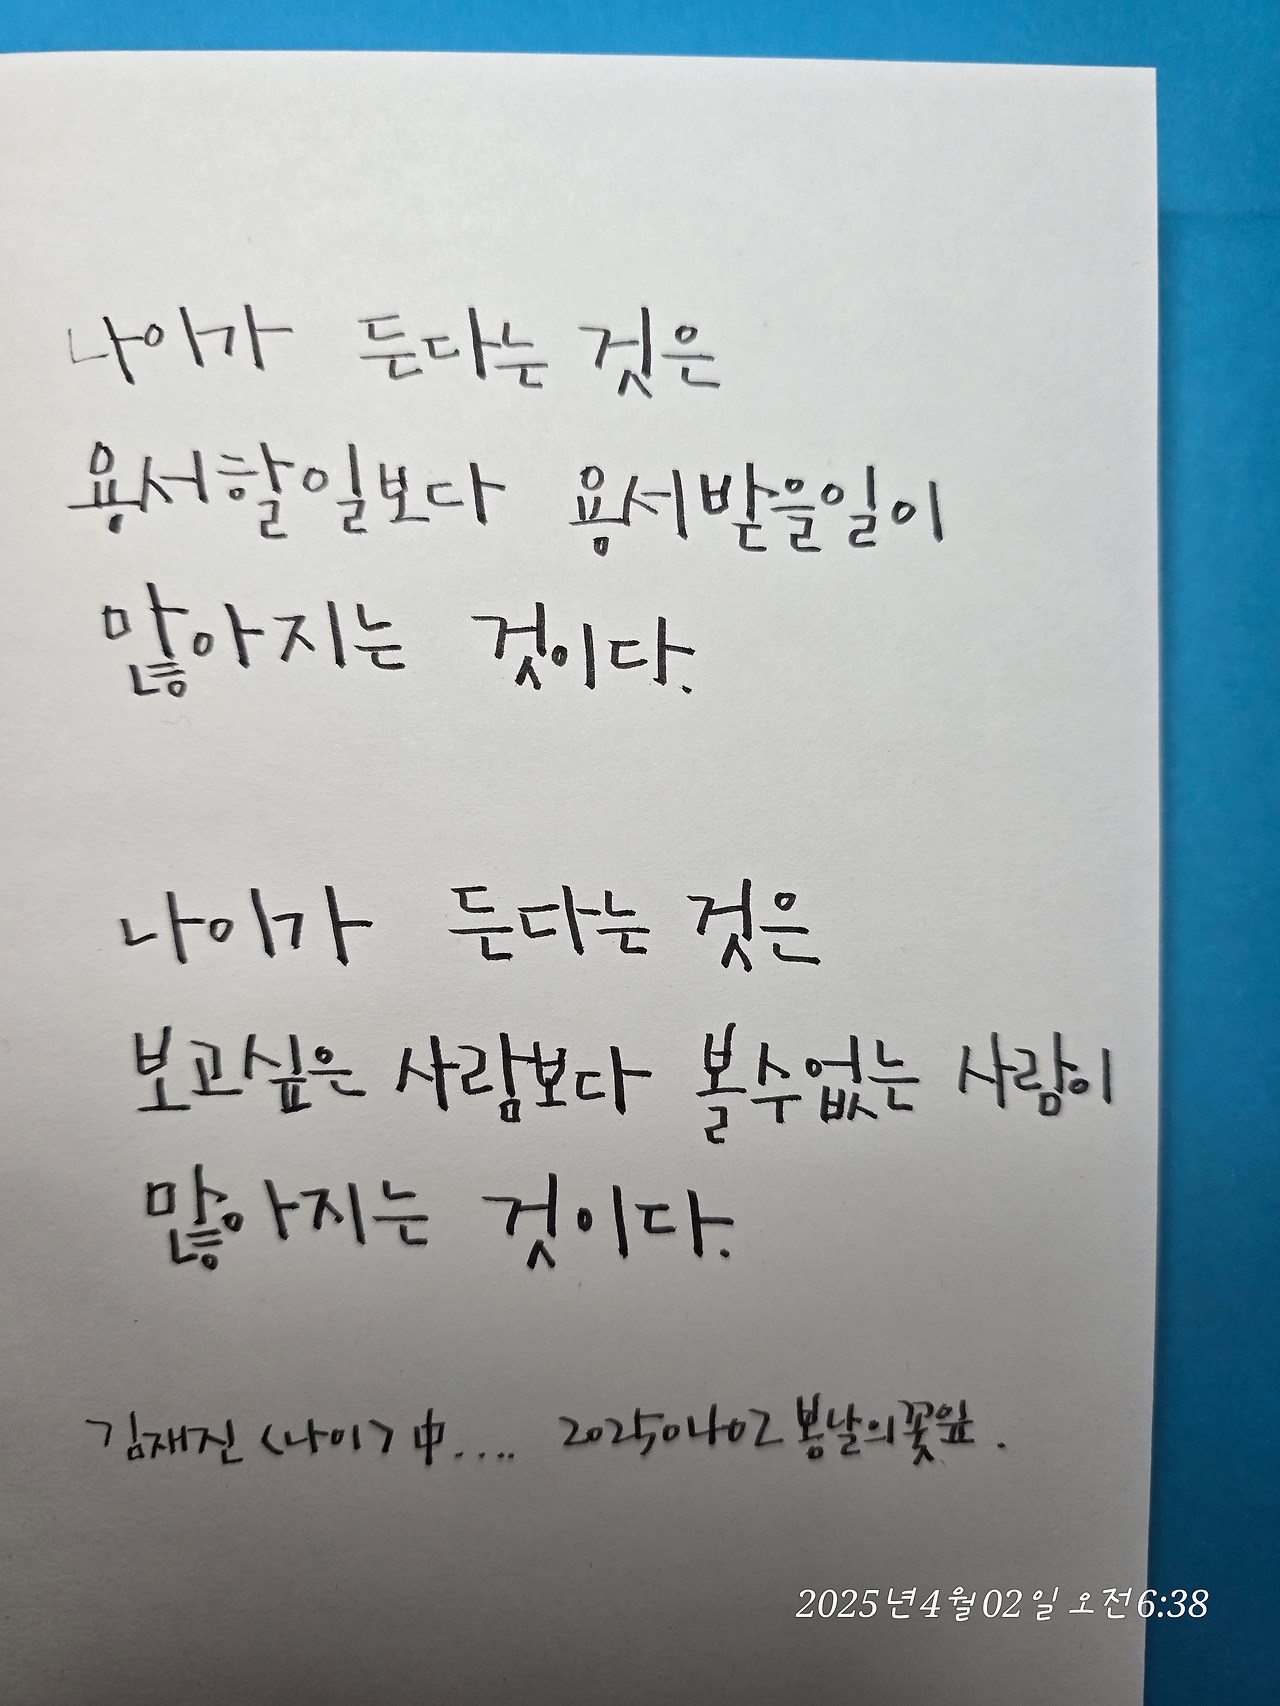 나이가 든다는 것은
용서할일보다 용서받을일이
많아지는 것이다.
나이가 든다는 것은
보고싶은 사람보다 볼수없는 사람이
많아지는 것이다.
김재진 <나이> 中.... 20250402 봄날의꽃잎.
2025년4월02일 오전6:38